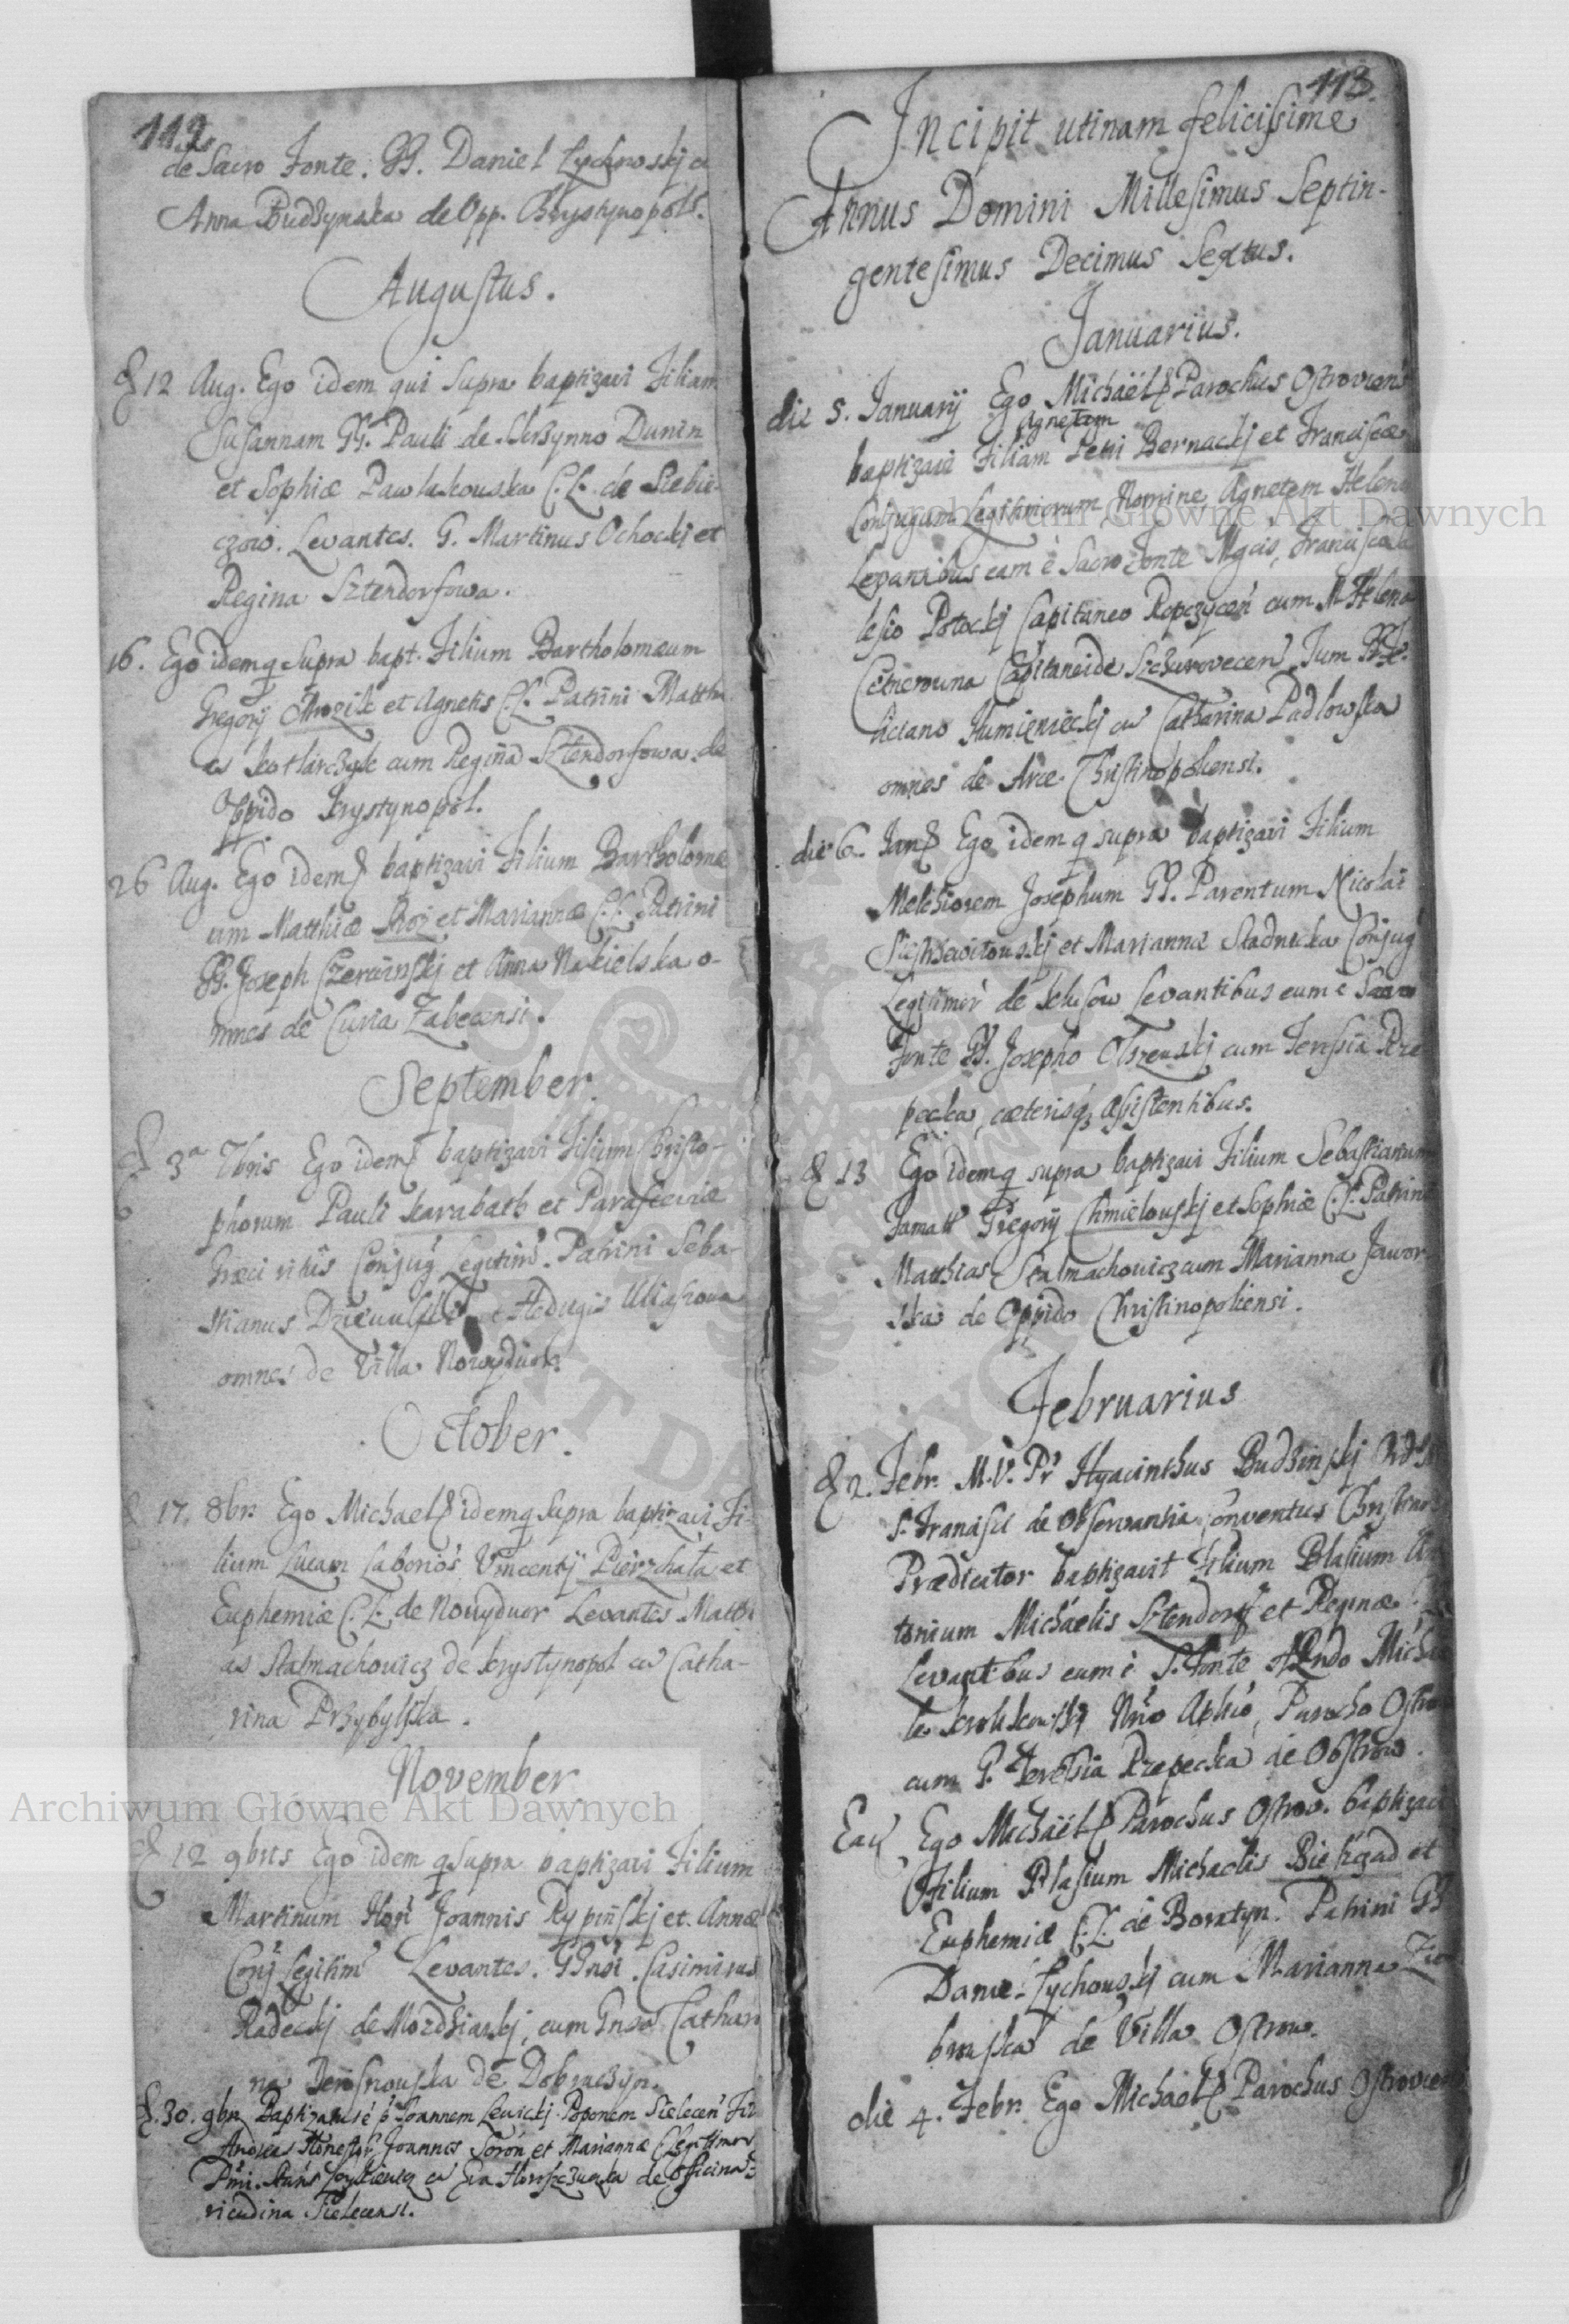 112
de Sacro Fonte. GG. Daniel Lychnoskj cū
Anna Budzynska de Opp. Chrystynopols.
Augustus.
12 Aug. Ego idem qui supra baptizavi Filiam
Susannam GG. Pauli de Skrzynno Dunin
et Sophiæ Pawlukouska C.L. de Siebie-
czow. Levantes. G. Martinus Ochockj et
Regina Sztendorfowa.
16. Ego idem q supra bapt. Filium Bartholomæum
Gregorij Mrozik et Agnetis C.L. Patrini Matthi
Kotlarczyk cum Reginā Sztendorfowa de
Oppido Krystynopol.
26 Aug. Ego idem baptizavi Filium Bartholomæ
um Matthiæ Roy et Mariannæ C.L. Patrini
GG. Joseph Czerwinskj et Anna Nakielska o-
mnes de Curia Zabcensi.
September.
3a 7bris Ego idem baptizavi Filium Christo-
phorum Pauli Karabath et Parasceviæ
Græci ritūs Conjug Legitim. Patrini Seba-
stianus et Hedugis Uliaszowa
omnes de Villa Nowydwor.
October.
17. 8br. Ego Michael idem q supra baptizavi Fi-
lium Lucam Laborios Vincentij Pierzchała et
Euphemiæ C.L. de Nouyduor Levantes Matthi
as Stalmachowicz de Krystynopol cū Catha-
rina Przybylska.
November
12 9bris Ego idem q supra baptizavi Filium
Martinum Hon Joannis Rypinskj et Annæ
Conj Legitim Levantes. GGnsi. Casimirus
Radeckj de Mozdziankj, cum Gnsa Cathari
na de Dobraczyn.
30. 9br Baptizatus ē p Joannem Lewickj Poponem Sielecen Fil
Andreas Honestor Joannes Soron et Mariannæ C Legitimor
cū Eva de Officina
Sielecensi.
113.
Incipit utinam felicissime
Annus Domini Millesimus Septin-
gentesimus Decimus Sextus.
Januarius.
die 5. Januarij Ego Michaël Parochus Ostroviens
Agnetem
baptizavi Filiam Petri Bernackj et Franciscæ
Conjugum Legitimorum Nomine Agnetem Helena
Levantibus eam è Sacro Fonte Mgcis, Francisco Sa
lesio Potockj Capitaneo Ropczycen cum M Helena
Cetnerouna Capitaneide Szczurovecen. Tum GG. Fe-
liciano Humienieckj cū Catharina Padlowska
omnes de Arce Christinopoliensi.
die 6. Jan Ego idem q supra baptizavi Filium
Melchiorem Josephum GG. Parentum Nicolai
et Mariannæ Stadnicka Conjug
Legitimor de Klusow Levantibus eum è Sacro
Fonte GG. Josepho Olszewskj cum Teressia Rze
pecka, cæterisq assistentibus.
13 Ego idem q supra baptizavi Filium Sebastianum
Famati Gregorij Chmielouskj et Sophiæ C.L. Patrini
Matthias Stalmachowicz cum Marianna Jawor-
ska de Oppido Christinopoliensi.
Februarius
2. Febr. M.V. Pr Hyacinthus Budzinskj Ord
S. Francisci de Observantia Conventus Christino
Prædicator baptizavit Filium Blasium An
tonium Michaelis Sztendorf et Reginæ
Levantibus eum è S. Fonte Mich
le Parocho Ostro
cum G. Teressia Rzepecka de Ostrow.
Ead Ego Michaël Parochus Ostrov. baptizavi
Filium Blasium Michaelis Biekgad et
Euphemiæ C.L. de Boratyn. Patrini GG
Daniel Lychouskj cum Marianna
de Villa Ostrow.
die 4. Febr. Ego Michael Parochus Ostrovien
Archiwum Główne Akt Dawnych
Archiwum Główne Akt Dawnych